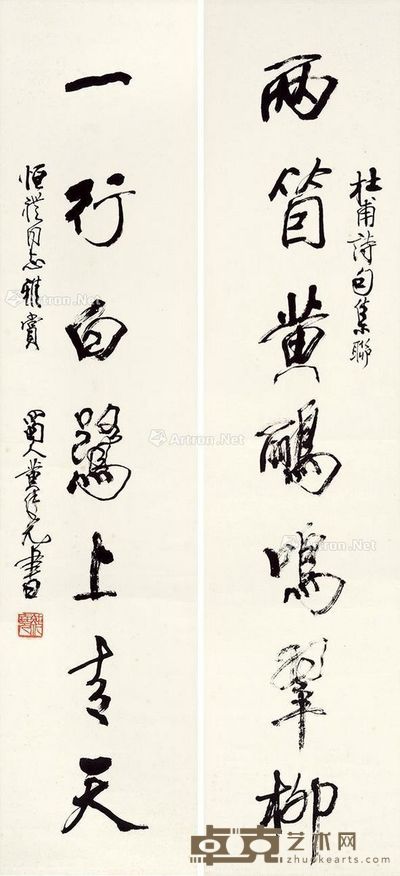 杜甫詩句集聯
兩箇黄鸝鳴翠柳
一行白鷺上青天
恒 同志雅賞
蜀人黄 元書
Artron.Net
Artron.Net
Artron.Net
Artron.Net
Artron.Net
卓克艺术网
zhuokearts.com